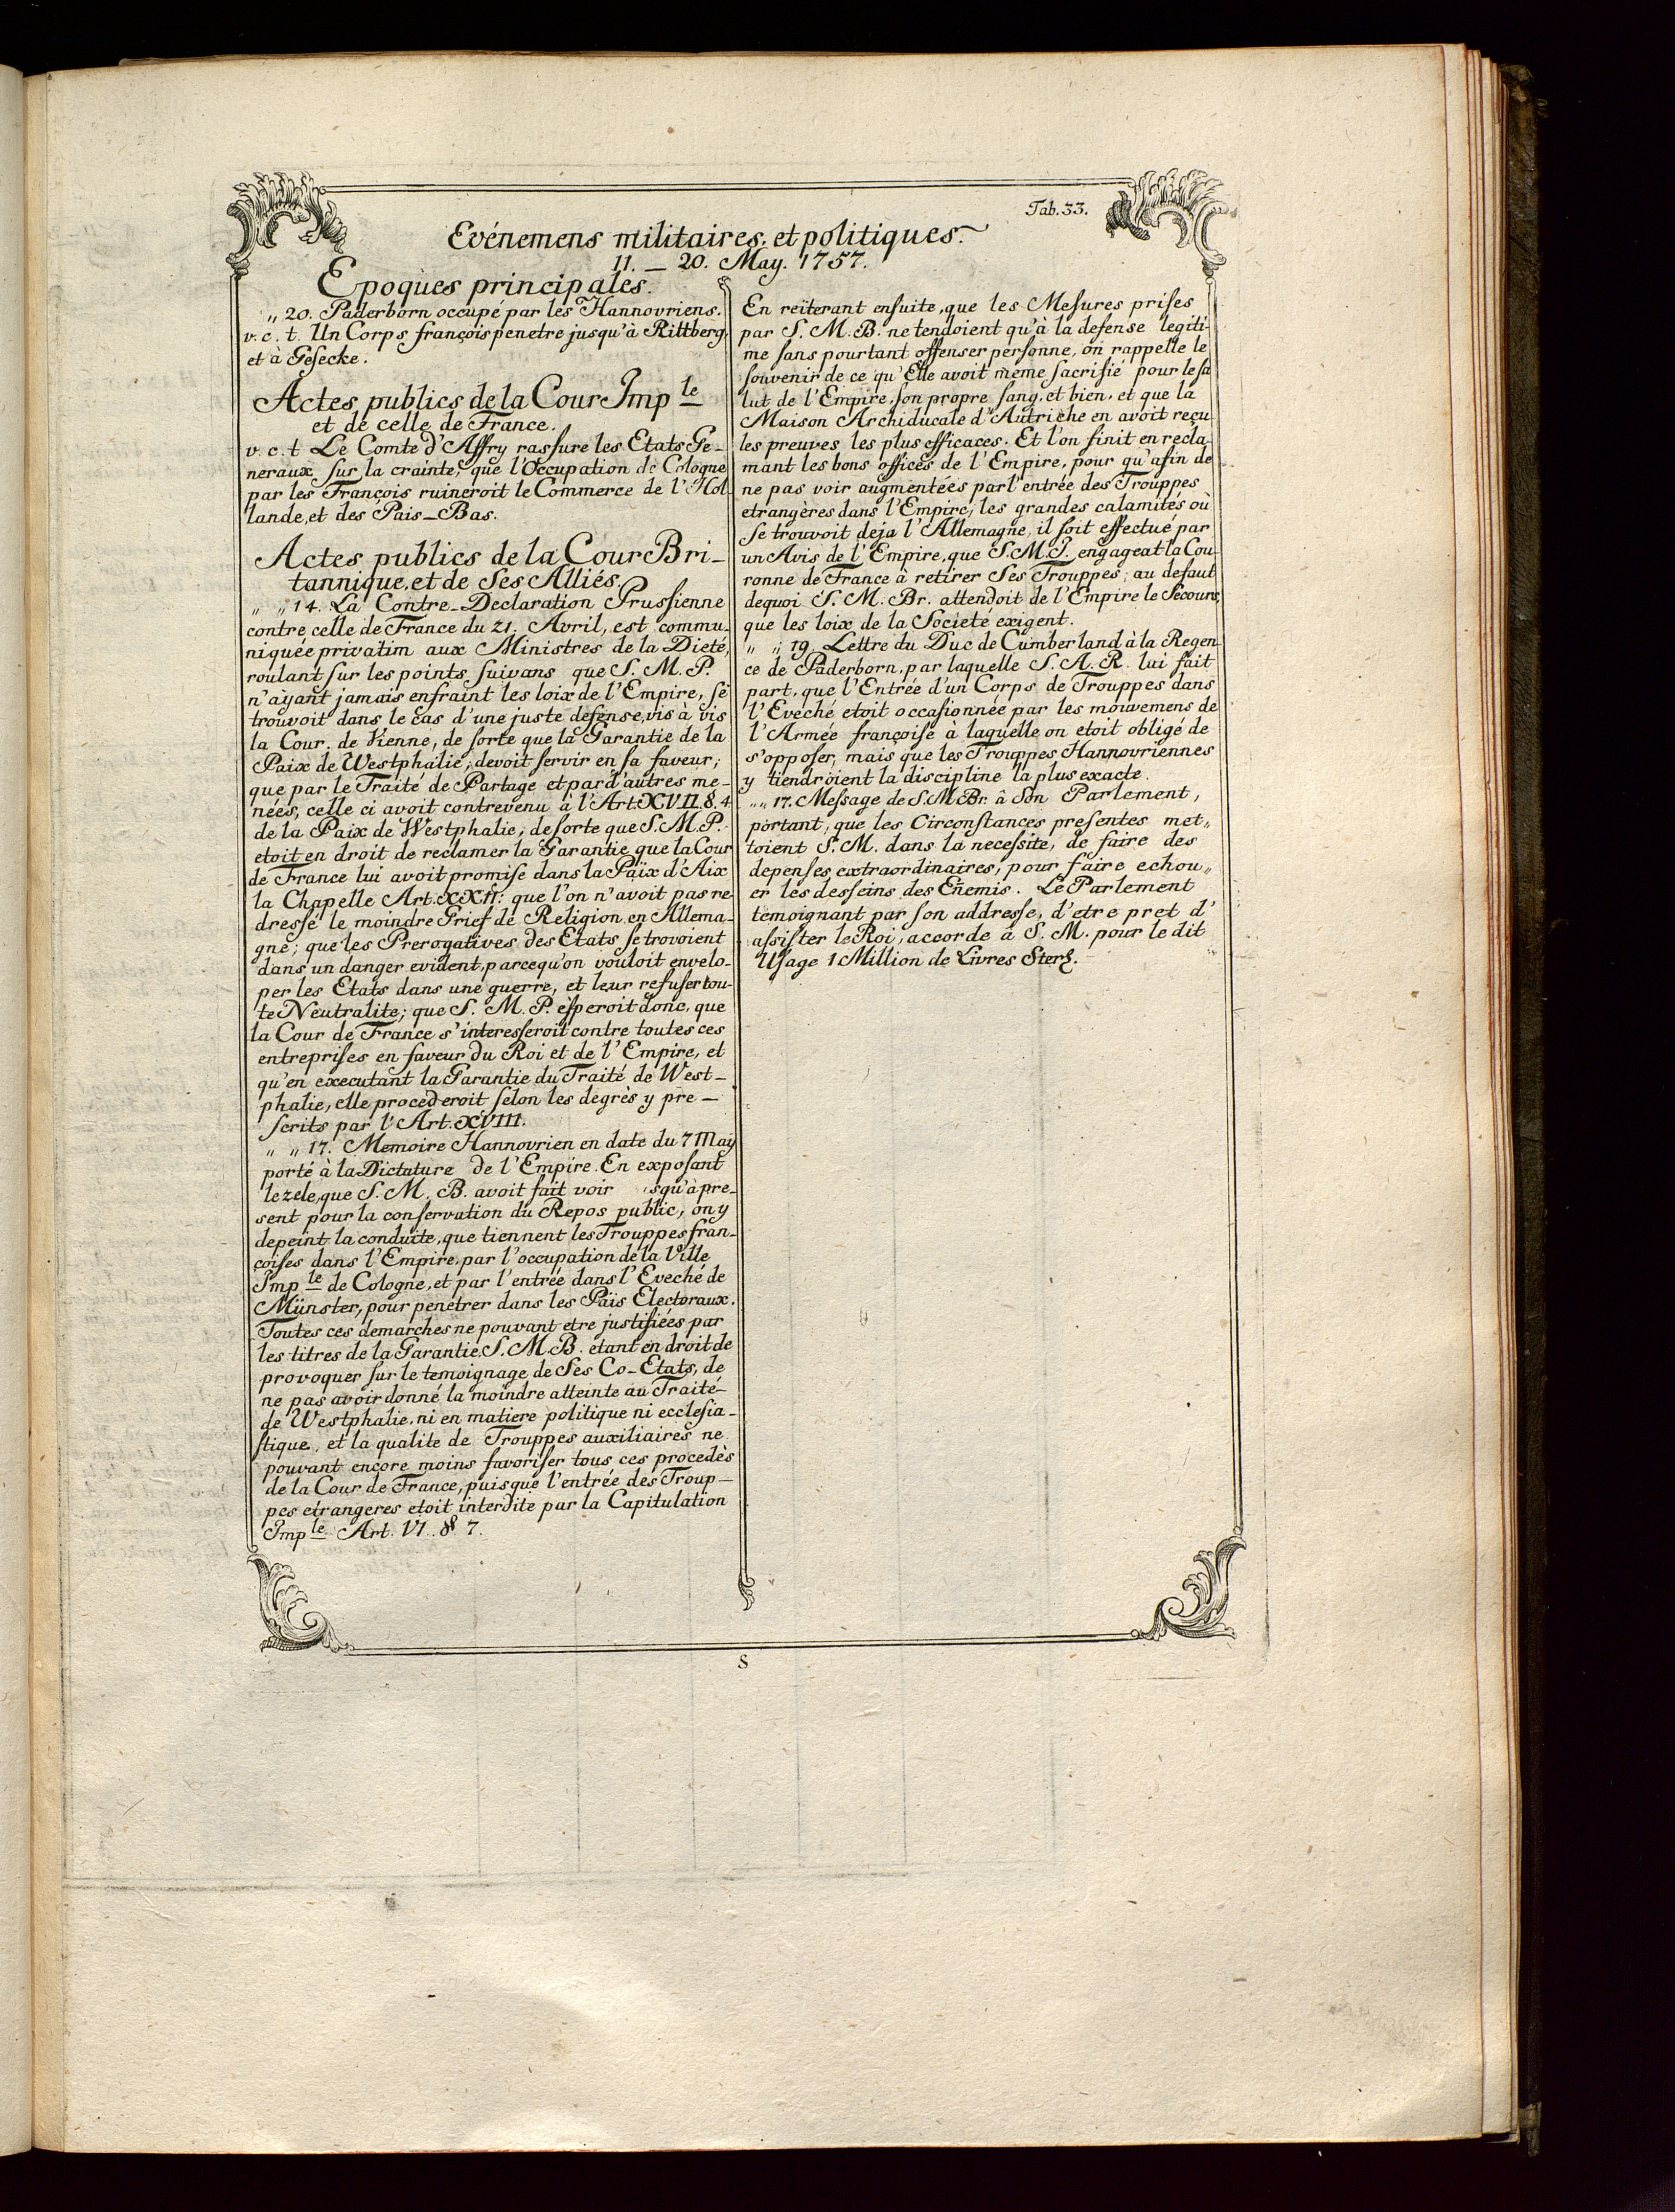 Tab. 33.
Evénemens militaires, et politiques.
11. — 20. May. 1757.
Epoques principales.
„ 20. Paderborn occupé par les Hannovriens.
v. c. t. Un Corps françois penetre jusqu'à Rittberg,
et à Geſecke.
Actes publics de la Cour Imp le
et de celle de France.
v. c. t Le Comte d'Affry raſſure les Etats Ge-
neraux ſur la crainte, que l'Occupation de Cologne
par les François ruineroit le Commerce de l'Hol-
lande, et des Païs-Bas.
Actes publics de la Cour Bri-
tannique, et de Ses Alliés.
„ „ 14. La Contre-Declaration Pruſsienne
contre celle de France du 21. Avril, est commu-
niquée privatim aux Ministres de la Dieté,
roulant ſur les points ſuivans que S. M. P.
n'ayant jamais enfraint les loix de l'Empire, ſe
trouvoit dans le cas d'une juste defense, vis à vis
la Cour de Vienne, de ſorte que la Garantie de la
Paix de Westphalie, devoit ſervir en ſa faveur;
que par le Traité de Partage et par d'autres me-
nées, celle ci avoit contrevenu à l'Art. XVII. §. 4
de la Paix de Westphalie, de ſorte que S. M. P.
etoit en droit de reclamer la Garantie que la Cour
de France lui avoit promiſe dans la Païx d'Aix
la Chapelle Art. XXII: que l'on n'avoit pas re-
dreſſé le moindre Grief de Religion en Allema-
gne; que les Prerogatives des Etats ſe trovoient
dans un danger evident, parcequ'on vouloit envelo-
per les Etats dans une guerre, et leur refuſer tou-
te Neutralite; que S. M. P. eſperoit donc, que
la Cour de France s'intereſſeroit contre toutes ces
entrepriſes en faveur du Roi et de l'Empire, et
qu'en executant la Garantie du Traité de West-
phalie, elle procederoit ſelon les degrès y pre-
ſcrits par l'Art. XVIII.
„ „ 17. Memoire Hannovrien en date du 7 May
porté à la Dictature de l'Empire. En expoſant
le zele, que S. M. B. avoit fait voir squ'à pre-
sent pour la conſervation du Repos public, on y
depeint la conduite, que tiennent les Trouppes fran-
çoiſes dans l'Empire, par l'occupation de la Ville
Imp le de Cologne, et par l'entrée dans l'Eveché de
Münster, pour penetrer dans les Païs Electoraux.
Toutes ces demarches ne pouvant etre justifiées par
les titres de la Garantie, S. M. B. etant en droit de
provoquer ſur le temoignage de Ses Co-Etats, de
ne pas avoir donné la moindre atteinte au Traité
de Westphalie, ni en matiere politique ni eccleſia-
ſtique, et la qualite de Trouppes auxiliaires ne
pouvant encore moins favoriſer tous ces procedès
de la Cour de France, puisque l'entrée des Troup-
pes etrangeres etoit interdite par la Capitulation
Imp le Art. VI. § 7.
En reïterant enſuite, que les Meſures priſes
par S. M. B. ne tendoient qu'à la defense legiti-
me ſans pourtant offenser perſonne, on rappelle le
ſouvenir de ce qu'Elle avoit meme ſacrifié pour le ſa
lut de l'Empire, ſon propre ſang, et bien, et que la
Maison Archiducale d'Autriche en avoit reçu
les preuves les plus efficaces. Et l'on finit en recla-
mant les bons offices de l'Empire, pour qu'afin de
ne pas voir augmentées par l'entrée des Trouppes
etrangères dans l'Empire, les grandes calamités où
Se trouvoit deja l'Allemagne, il ſoit effectué par
un Avis de l'Empire, que S. M. I. engageat la Cou-
ronne de France à retirer Ses Trouppes; au defaut
dequoi S. M. Br. attendoit de l'Empire le Secours,
que les loix de la Societé exigent.
„ „ 19. Lettre du Duc de Cumberland à la Regen-
ce de Paderborn, par laquelle S. A. R. lui fait
part, que l'Entrée d'un Corps de Trouppes dans
l'Eveché etoit occaſionnée par les mouvemens de
l'Armée françoiſe à laquelle on etoit obligé de
s'oppoſer, mais que les Trouppes Hannovriennes
y tiendroient la discipline la plus exacte.
„ „ 17. Meſsage de S. M Br. à Son Parlement,
portant, que les Circonſtances preſentes met„
toient S. M. dans la neceſsite, de faire des
depenſes extraordinaires, pour faire echou„
er les deſſeins des Eñemis. Le Parlement
temoignant par ſon addreſſe, d'etre pret d'
aſsiſter le Roi, accorde à S. M. pour le dit
Uſage 1 Million de Livres Sterl.
S